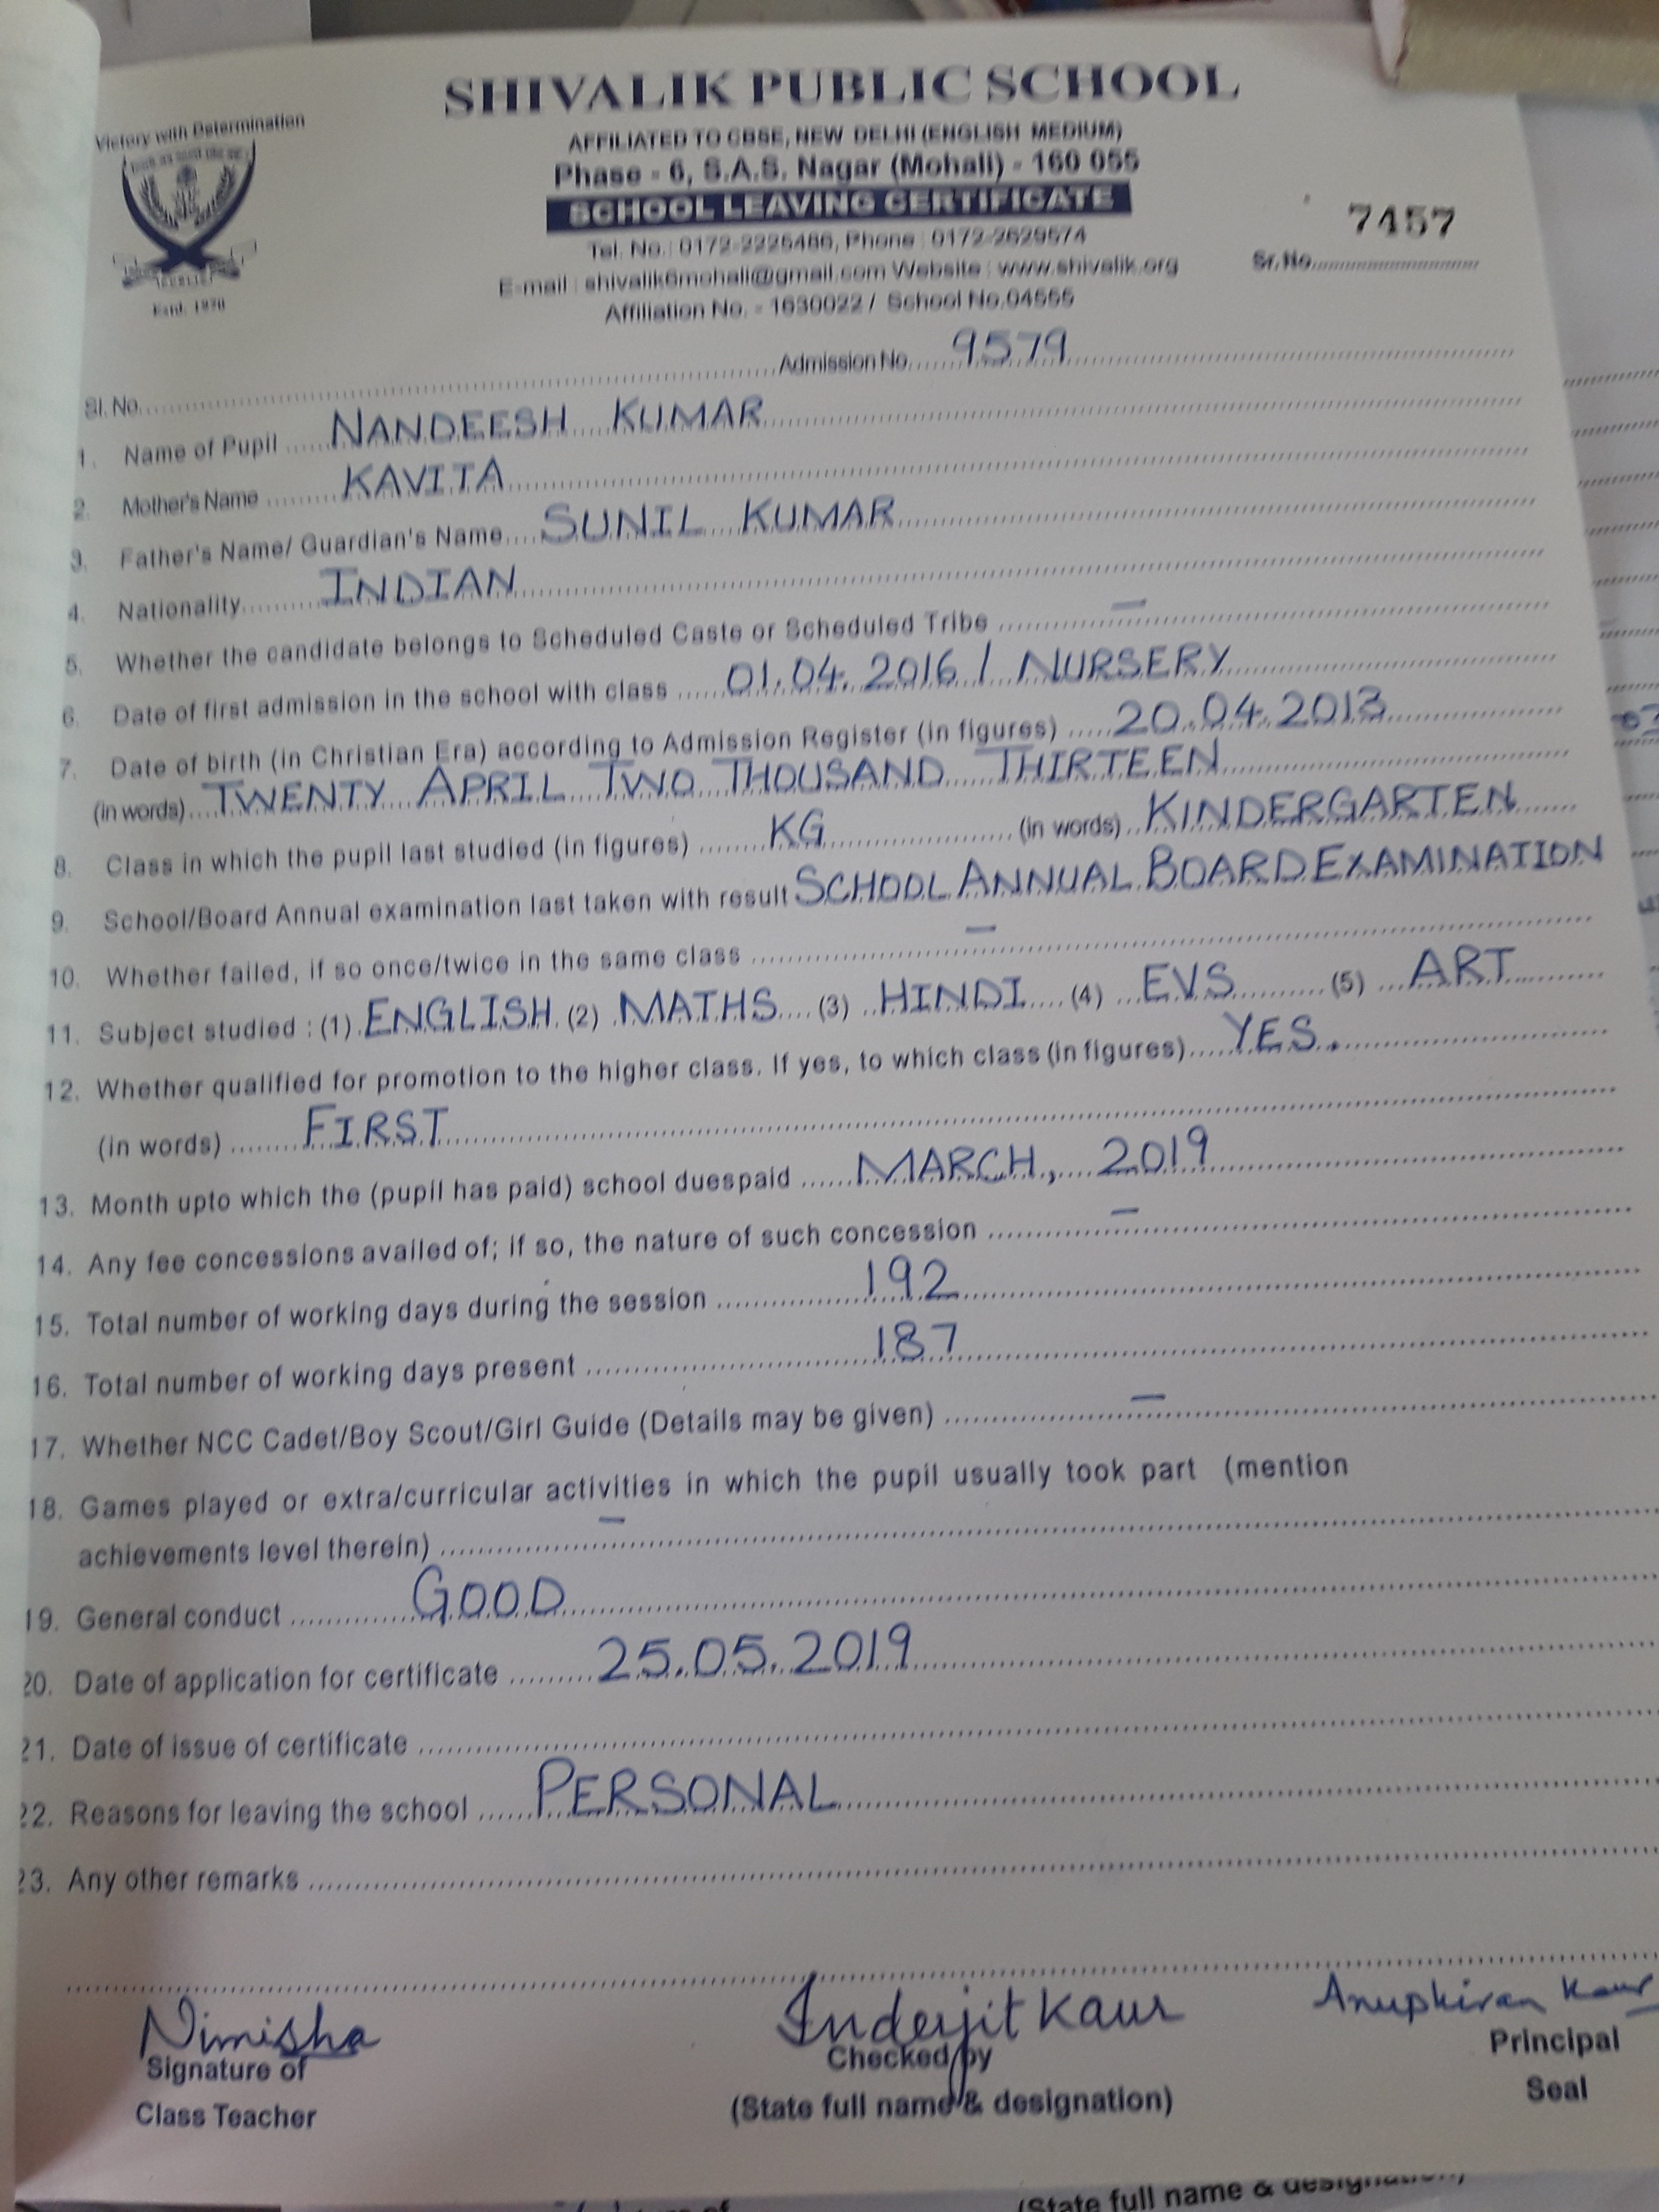 SHIVALIK PUBLIC SCHOOL
Victory with Determination
AFFILIATED TO CBSE, NEW DELHI (ENGLISH MEDIUM)
Phase - 6, S.A.S. Nagar (Mohali) - 160 055
SCHOOL LEAVING CERTIFICATE
7457
Tel. No.: 0172-2225486, Phone : 0172-2629574
E-mail : shivalik6mohali@gmail.com Website : www.shivalik.org
Sr.No.
Affiliation No. - 1630022 / School No.04555
Estd. 1970
Sl. No. Admission No. 9579
1. Name of Pupil NANDEESH KUMAR
2. Mother's Name KAVITA
3. Father's Name/ Guardian's Name SUNIL KUMAR
4. Nationality INDIAN
5. Whether the candidate belongs to Scheduled Caste or Scheduled Tribe —
6. Date of first admission in the school with class 01.04.2016 / NURSERY
7. Date of birth (in Christian Era) according to Admission Register (in figures) 20.04.2013
(in words) TWENTY APRIL TWO THOUSAND THIRTEEN
8. Class in which the pupil last studied (in figures) KG (in words) KINDERGARTEN
9. School/Board Annual examination last taken with result SCHOOL ANNUAL BOARD EXAMINATION
10. Whether failed, if so once/twice in the same class —
11. Subject studied : (1) ENGLISH (2) MATHS (3) HINDI (4) EVS (5) ART
12. Whether qualified for promotion to the higher class. If yes, to which class (in figures) YES.
(in words) FIRST
13. Month upto which the (pupil has paid) school duespaid MARCH, 2019
14. Any fee concessions availed of; if so, the nature of such concession —
15. Total number of working days during the session 192
16. Total number of working days present 187
17. Whether NCC Cadet/Boy Scout/Girl Guide (Details may be given) —
18. Games played or extra/curricular activities in which the pupil usually took part (mention
achievements level therein) —
19. General conduct GOOD
20. Date of application for certificate 25.05.2019
21. Date of issue of certificate
22. Reasons for leaving the school PERSONAL
23. Any other remarks
Nimisha Inderjit Kaur Anupkiran Kaur
Signature of Checked by Principal
Class Teacher (State full name & designation) Seal
(State full name & designation)